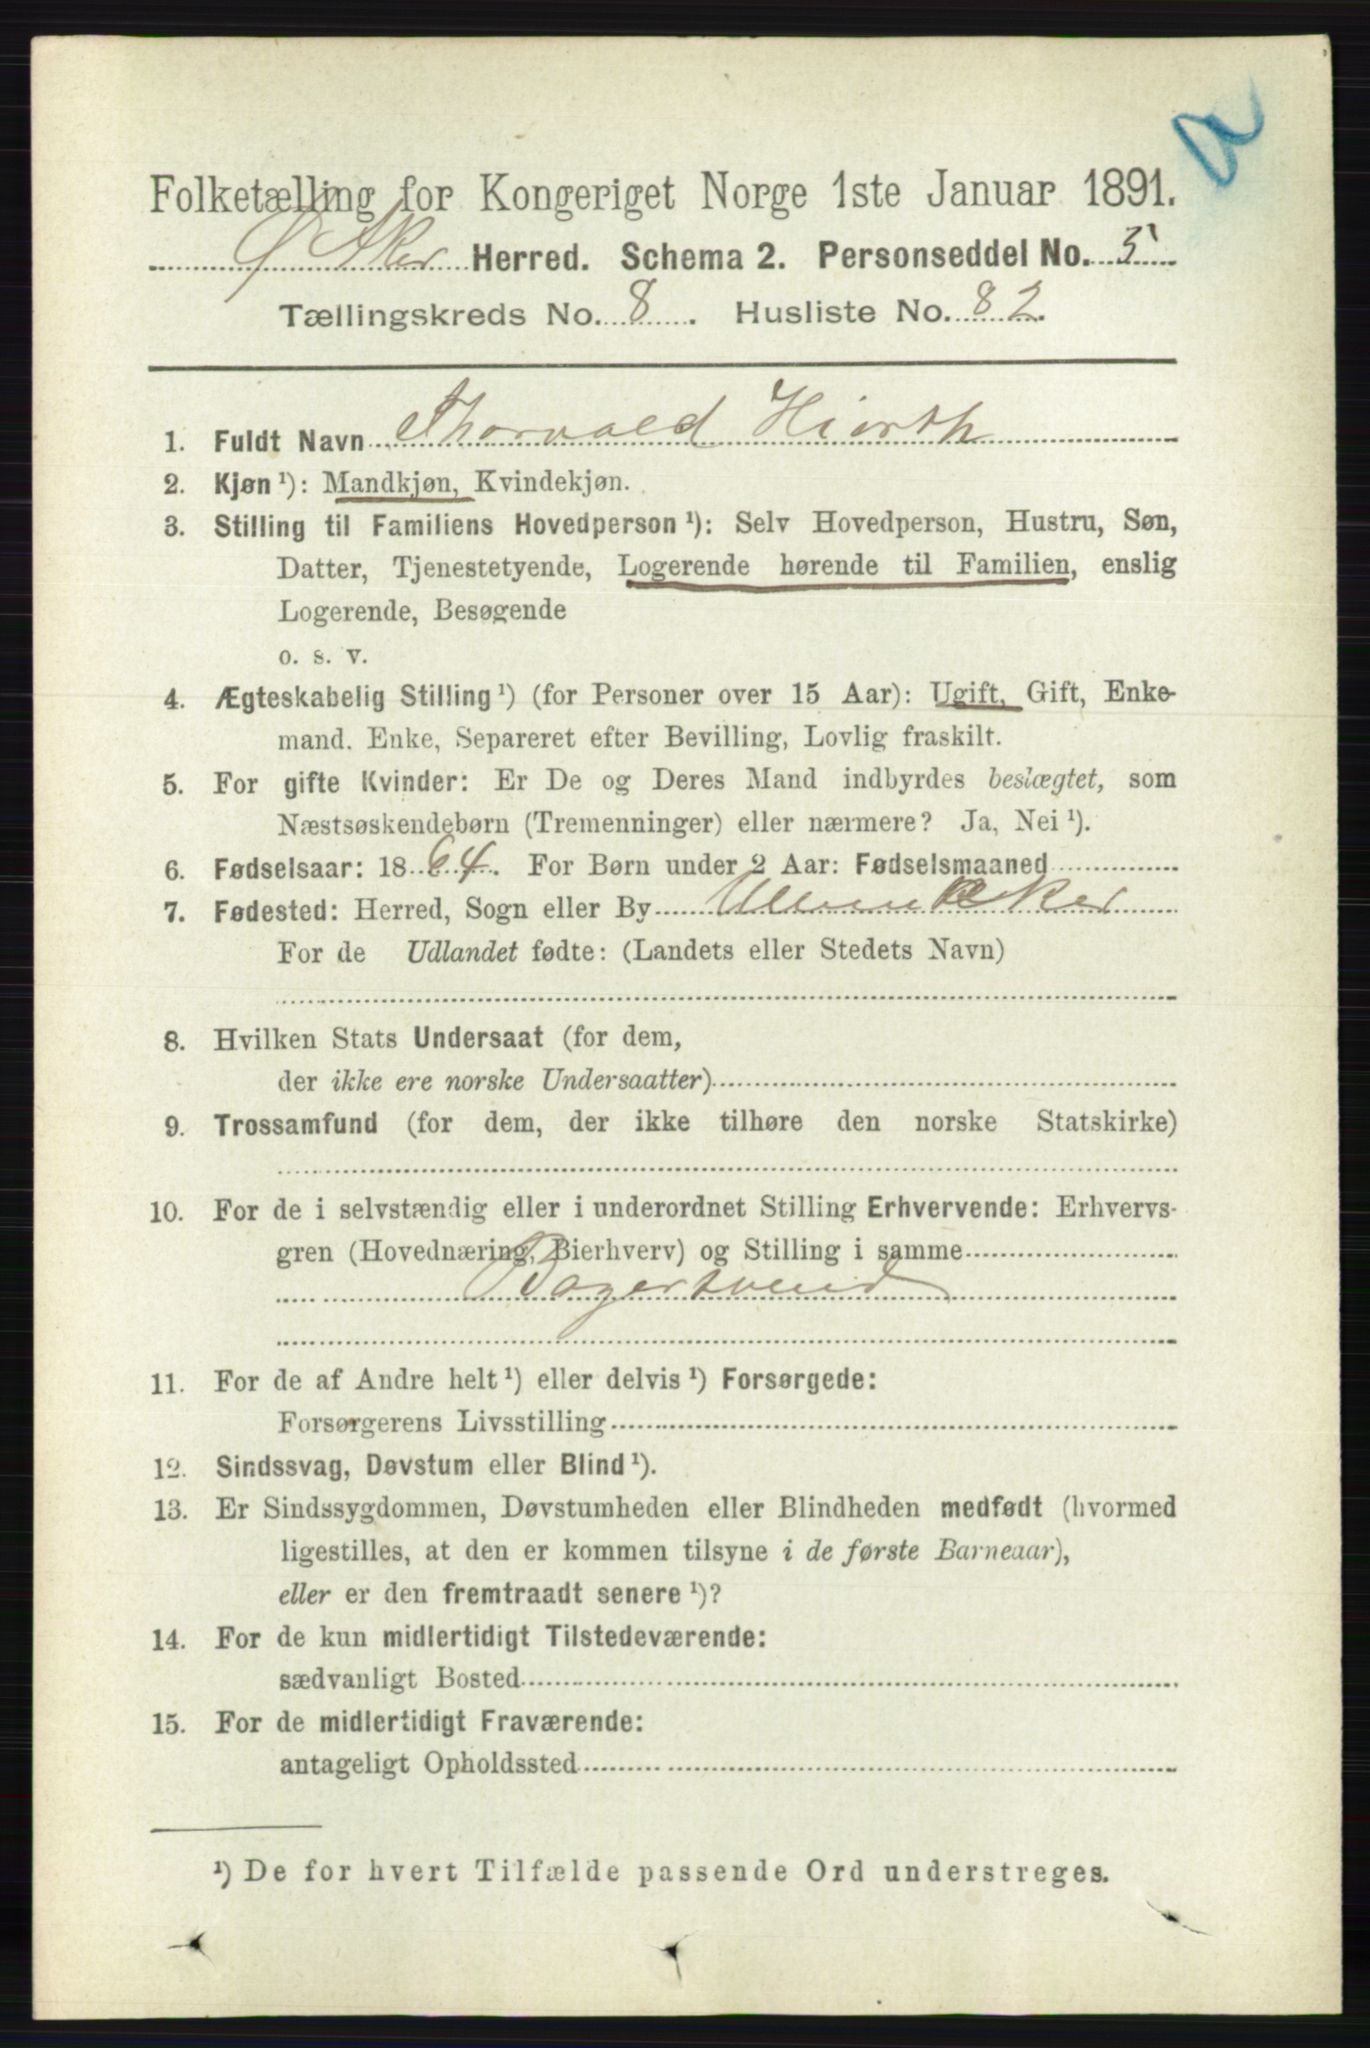 a
Folketælling for Kongeriget Norge 1ste Januar 1891.
Ø Aker Herred. Schema 2. Personseddel No. 5
Tællingskreds No. 8. Husliste No. 82.
1. Fuldt Navn Thorvald Hiorth
2. Kjøn ¹): Mandkjøn, Kvindekjøn.
3. Stilling til Familiens Hovedperson ¹): Selv Hovedperson, Hustru, Søn,
Datter, Tjenestetyende, Logerende hørende til Familien, enslig
Logerende, Besøgende
o. s. v.
4. Ægteskabelig Stilling ¹) (for Personer over 15 Aar): Ugift, Gift, Enke-
mand. Enke, Separeret efter Bevilling, Lovlig fraskilt.
5. For gifte Kvinder: Er De og Deres Mand indbyrdes beslægtet, som
Næstsøskendebørn (Tremenninger) eller nærmere? Ja, Nei ¹).
6. Fødselsaar: 1864. For Børn under 2 Aar: Fødselsmaaned
7. Fødested: Herred, Sogn eller By
For de Udlandet fødte: (Landets eller Stedets Navn)
8. Hvilken Stats Undersaat (for dem,
der ikke ere norske Undersaatter)
9. Trossamfund (for dem, der ikke tilhøre den norske Statskirke)
10. For de i selvstændig eller i underordnet Stilling Erhvervende: Erhvervs-
gren (Hovednæring, Bierhverv) og Stilling i samme
Bagersvend
11. For de af Andre helt ¹) eller delvis ¹) Forsørgede:
Forsørgerens Livsstilling
12. Sindssvag, Døvstum eller Blind ¹).
13. Er Sindssygdommen, Døvstumheden eller Blindheden medfødt (hvormed
ligestilles, at den er kommen tilsyne i de første Barneaar),
eller er den fremtraadt senere ¹)?
14. For de kun midlertidigt Tilstedeværende:
sædvanligt Bosted
15. For de midlertidigt Fraværende:
antageligt Opholdssted
¹) De for hvert Tilfælde passende Ord understreges.